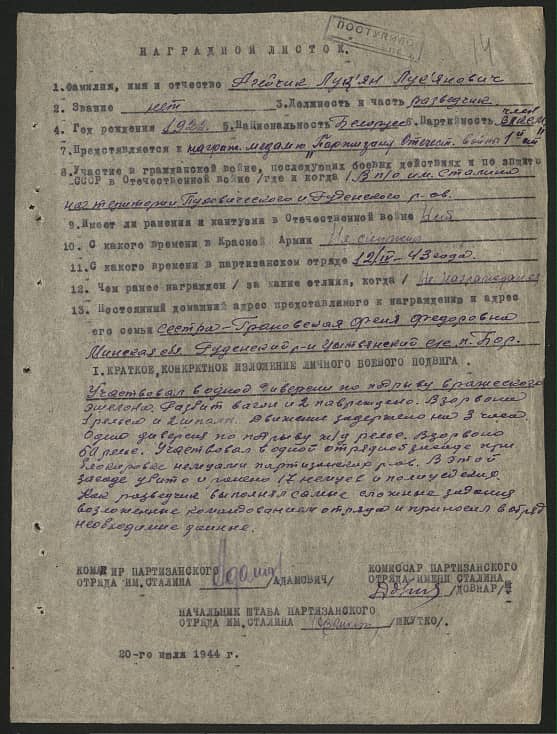 ПОСТУПИЛО
14
НАГРАДНОЙ ЛИСТОК.
1. Фамилия, имя и отчество Лук'ян Лук'янович
2. Звание нет 3. Должность и часть разведчик
4. Год рождения 5. Национальность Белорус 6. Партийность член ВЛКСМ
7. Предствляется к награжд. медалью "Партизану Отечест. войны 1й ст"
8. Участие в гражданской войне, последующих боевых действиях и по защите
СССР в Отечественной войне /где и когда/ В п/о им. Сталина
на територии Пуховического и Руденского р-ов.
9. Имеет ли ранения и кантузия в Отечественной войне Нет
10. С какого времени в Красной Армии Не служил
11. С какого времени в партизанском отряде 43 года.
12. Чем ранее награжден / за какие отлиия, когда / Не награждался
13. Постоянный домашний адрес представляемого к награждению и адрес
его семьи Сестра - Грановская Феня Федоровна
Минская обл. Руденский р-н с/с п. Бор.
I. КРАТКОЕ, КОНКРЕТНОЕ ИЗЛОЖЕНИЕ ЛИЧНОГО БОЕВОГО ПОДВИГА.
Участвовал в одной диверсии по подриву вражеского
эшелона. Разбит вагон и 2 повреждено. Взорвано
1 рельса и 2 шпалы. Движение задержано на 3 часа.
Одна диверсия по подриву ж/д рельс. Взорвано
рельс. Участвовал в одной отрядной засаде при
блокировке немцами партизанских р-ов. В этой
засаде убито и ранено 17 немцев и полицейских.
Как разведчик выполнял самые сложные задания
возложенные командованием отряда и приносил в отряд
необходимые данные.
КОМАНДИР ПАРТИЗАНСКОГО
ОТРЯДА ИМ. СТАЛИНА /АДАМОВИЧ/
КОМИССАР ПАРТИЗАНСКОГО
ОТРЯДА ИМЕНИ СТАЛИНА
/ДОВНАР/
НАЧАЛЬНИК ШТАБА ПАРТИЗАНСКОГО
ОТРЯДА ИМ. СТАЛИНА /ШКУТКО/.
20-го июля 1944 г.